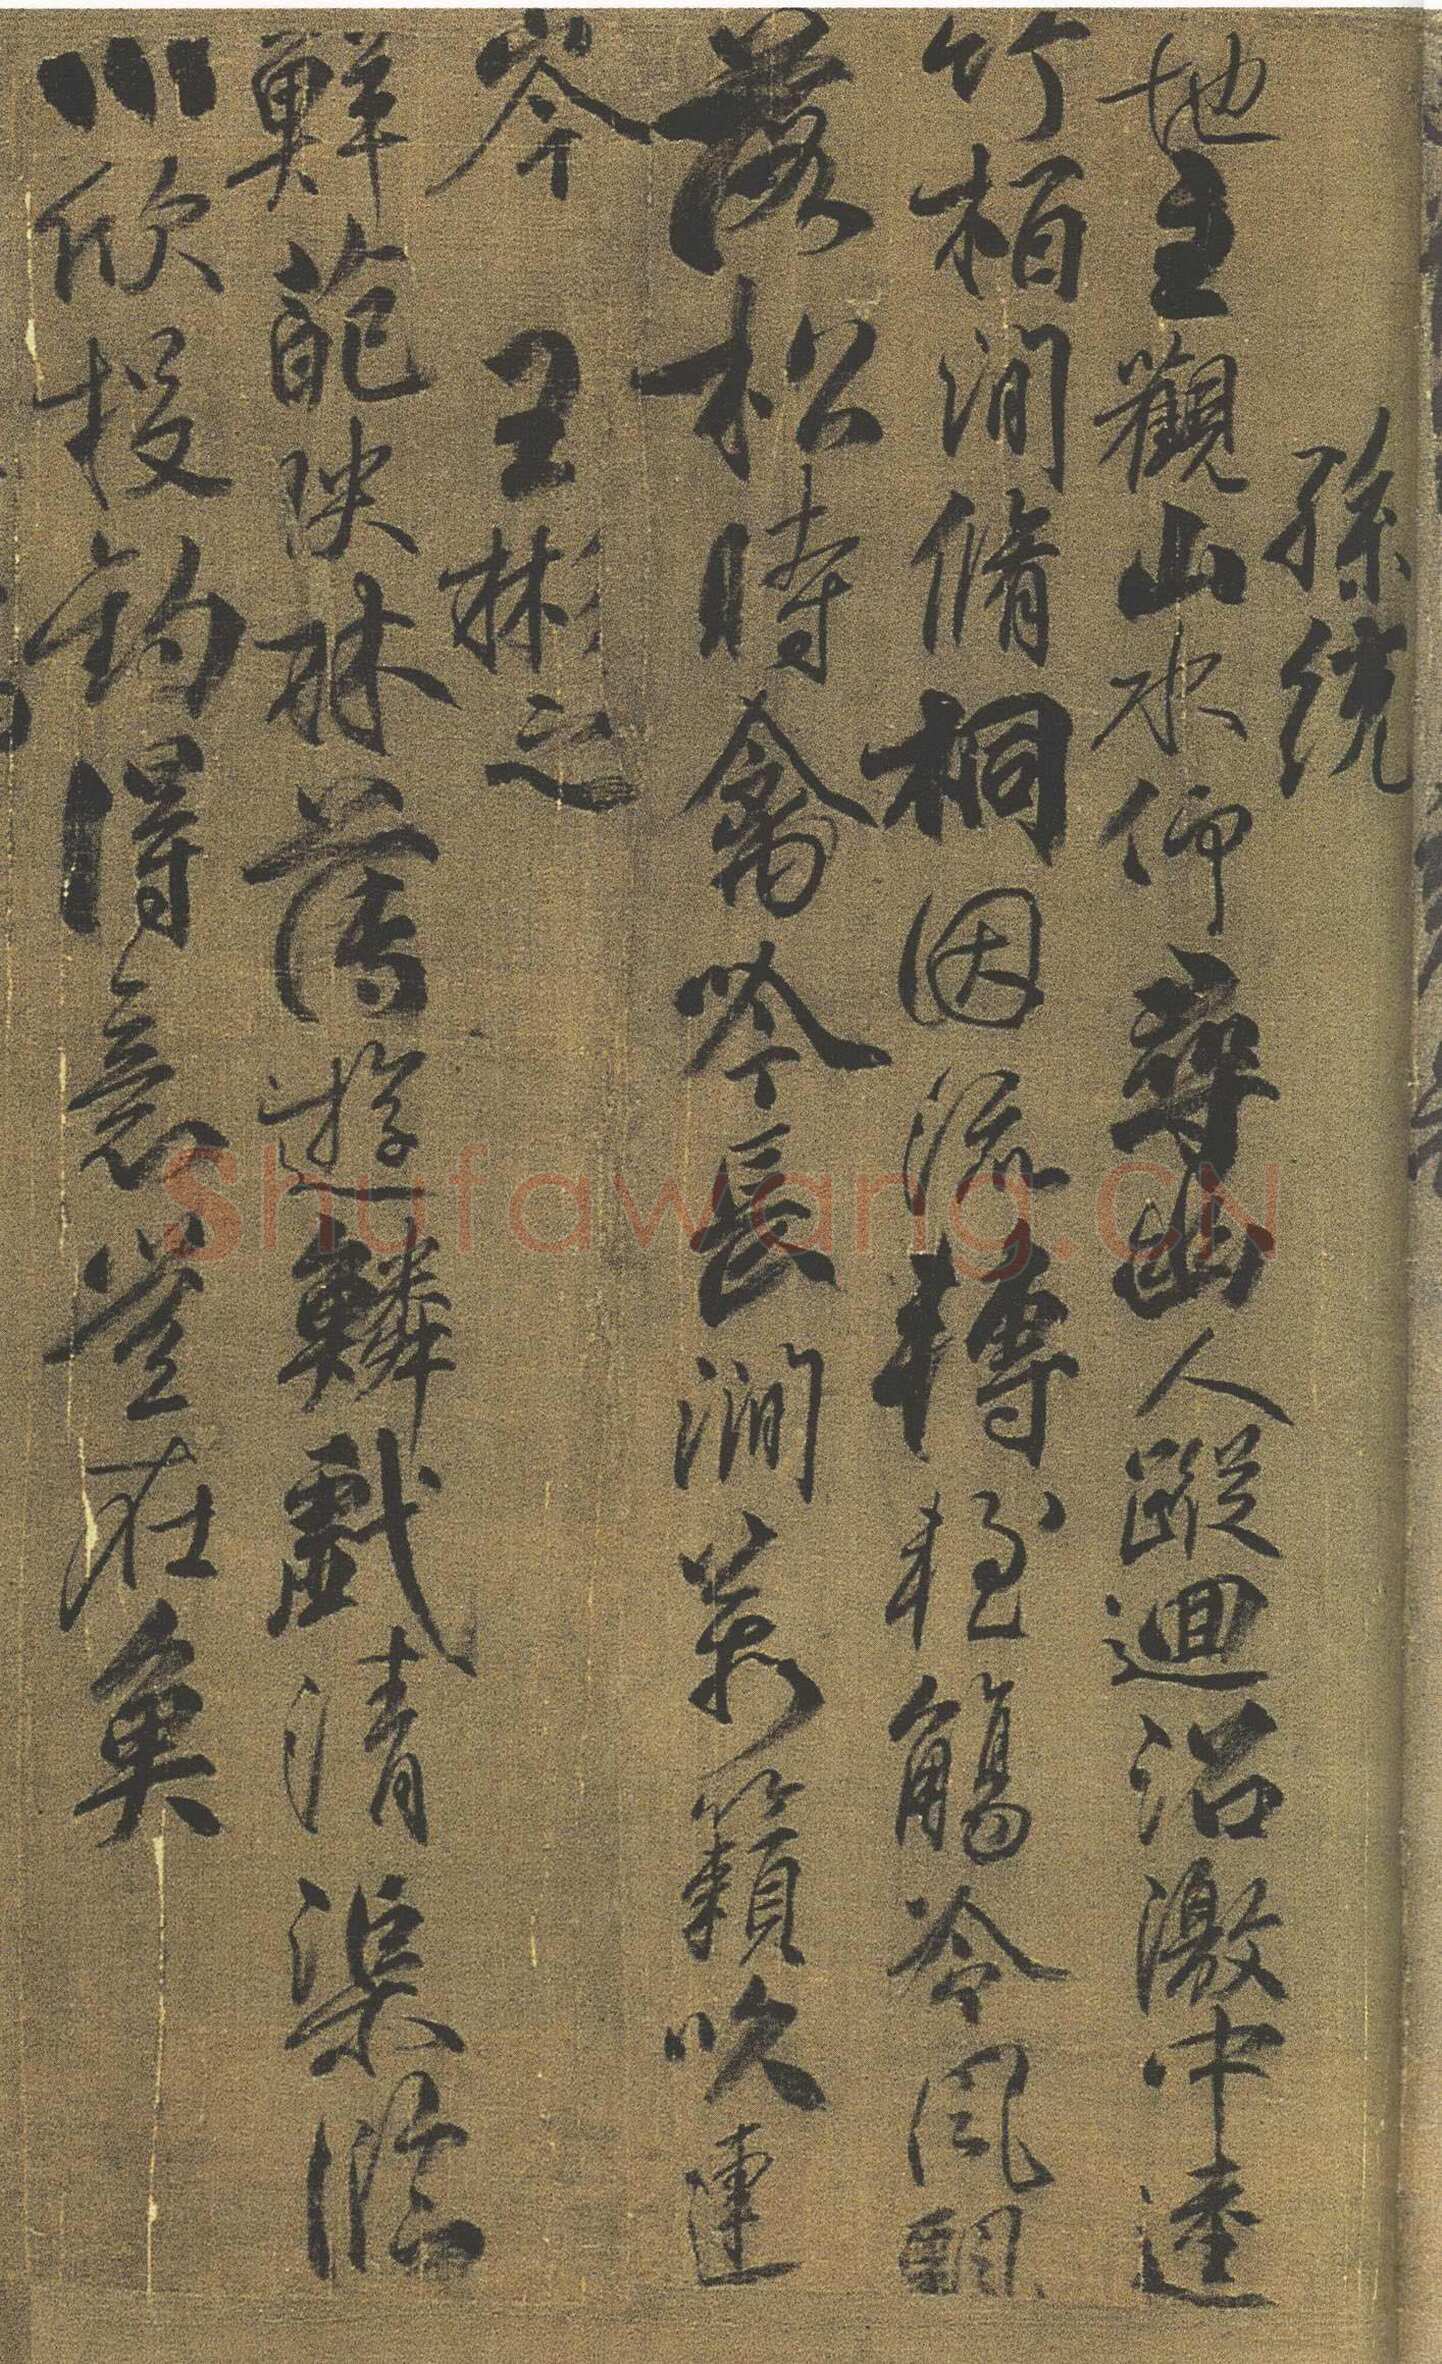 孫統
地主觀山水仰尋幽人蹤迴沼激中逵
竹栢間脩桐因流轉輕觴冷風飄
落松時禽吟長澗萬籟吹連
岑
王彬之
鮮葩映林薄遊鱗戲清渠臨
川欣投釣得意豈在魚
Shufawang.CN